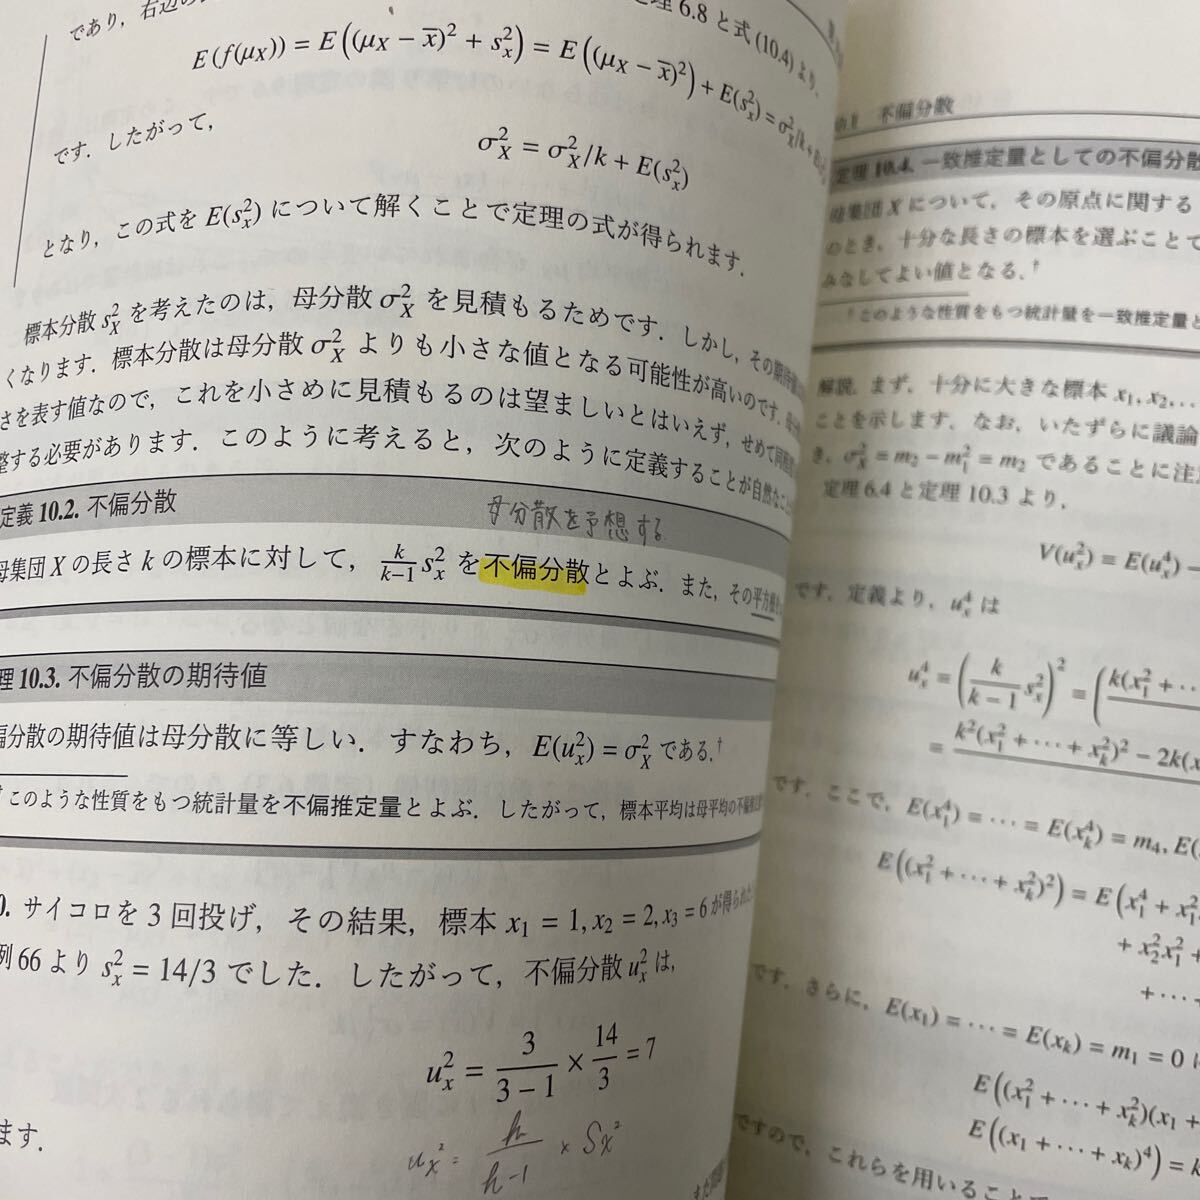 であり，右辺の
理 6.8 と式 (10.4) より，
E(f(μX)) = E((μX − x̄)² + s²x) = E((μX − x̄)²) + E(s²x) = σ²X/k + E
です．したがって，
σ²X = σ²X/k + E(s²x)
となり，この式を E(s²x) について解くことで定理の式が得られます．
標本分散 s²X を考えたのは，母分散 σ²X を見積もるためです．しかし，その期待値
くなります．標本分散は母分散 σ²X よりも小さな値となる可能性が高いのです．母分
さを表す値なので，これを小さめに見積もるのは望ましいとはいえず，せめて同程度
整する必要があります．このように考えると，次のように定義することが自然な
定義 10.2. 不偏分散
母分散を予想する
母集団 X の長さ k の標本に対して， k/k−1 s²x を不偏分散とよぶ．また，その平方根
理 10.3. 不偏分散の期待値
偏分散の期待値は母分散に等しい．すなわち，E(u²x) = σ²X である．†
† このような性質をもつ統計量を不偏推定量とよぶ．したがって，標本平均は母平均の不偏推定
0. サイコロを 3 回投げ，その結果，標本 x1 = 1, x2 = 2, x3 = 6 が得られた
例 66 より s²x = 14/3 でした．したがって，不偏分散 u²x は，
u²x = 3/(3 − 1) × 14/3 = 7
ます．
ux² = k/k-1 × Sx²
不偏分散
定理 10.4. 一致推定量としての不偏分散
母集団 X について，その原点に関する
のとき，十分な長さの標本を選ぶことで
みなしてよい値となる．†
† このような性質をもつ統計量を一致推定量と
解説. まず，十分に大きな標本 x1, x2, …
ことを示します．なお，いたずらに議論
き，σ²X = m2 − m²1 = m2 であることに注
定理 6.4 と定理 10.3 より，
V(u²x) = E(u⁴x) −
です．定義より，u⁴x は
u⁴x = (k/(k − 1) s²x)² = (k(x²1 + ⋯
= k²(x²1 + ⋯ + x²k)² − 2k(x
です．ここで，E(x⁴1) = ⋯ = E(x⁴k) = m4, E(
E((x²1 + ⋯ + x²k)²) = E(x⁴1 + x²
+ x²2x²1 +
+ ⋯ +
です．さらに，E(x1) = ⋯ = E(xk) = m1 = 0
E((x²1 + ⋯ + x²k)(x1 +
E((x1 + ⋯ + xk)⁴) = k
ですので，これらを用いること